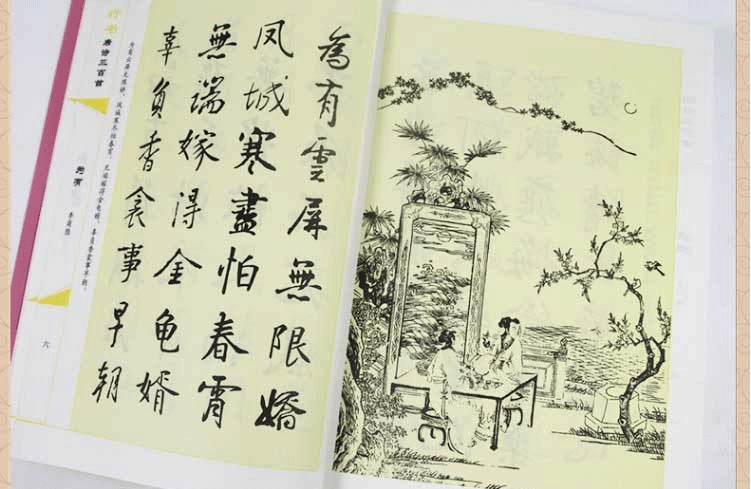 為有雲屏無限嬌
凤城寒盡怕春宵
無端嫁得金龟婿
辜负香衾事早朝
为有云屏无限娇，凤城寒尽怕春宵。无端嫁得金龟婿，辜负香衾事早朝。
行书
唐诗三百首
为有
李商隐
六